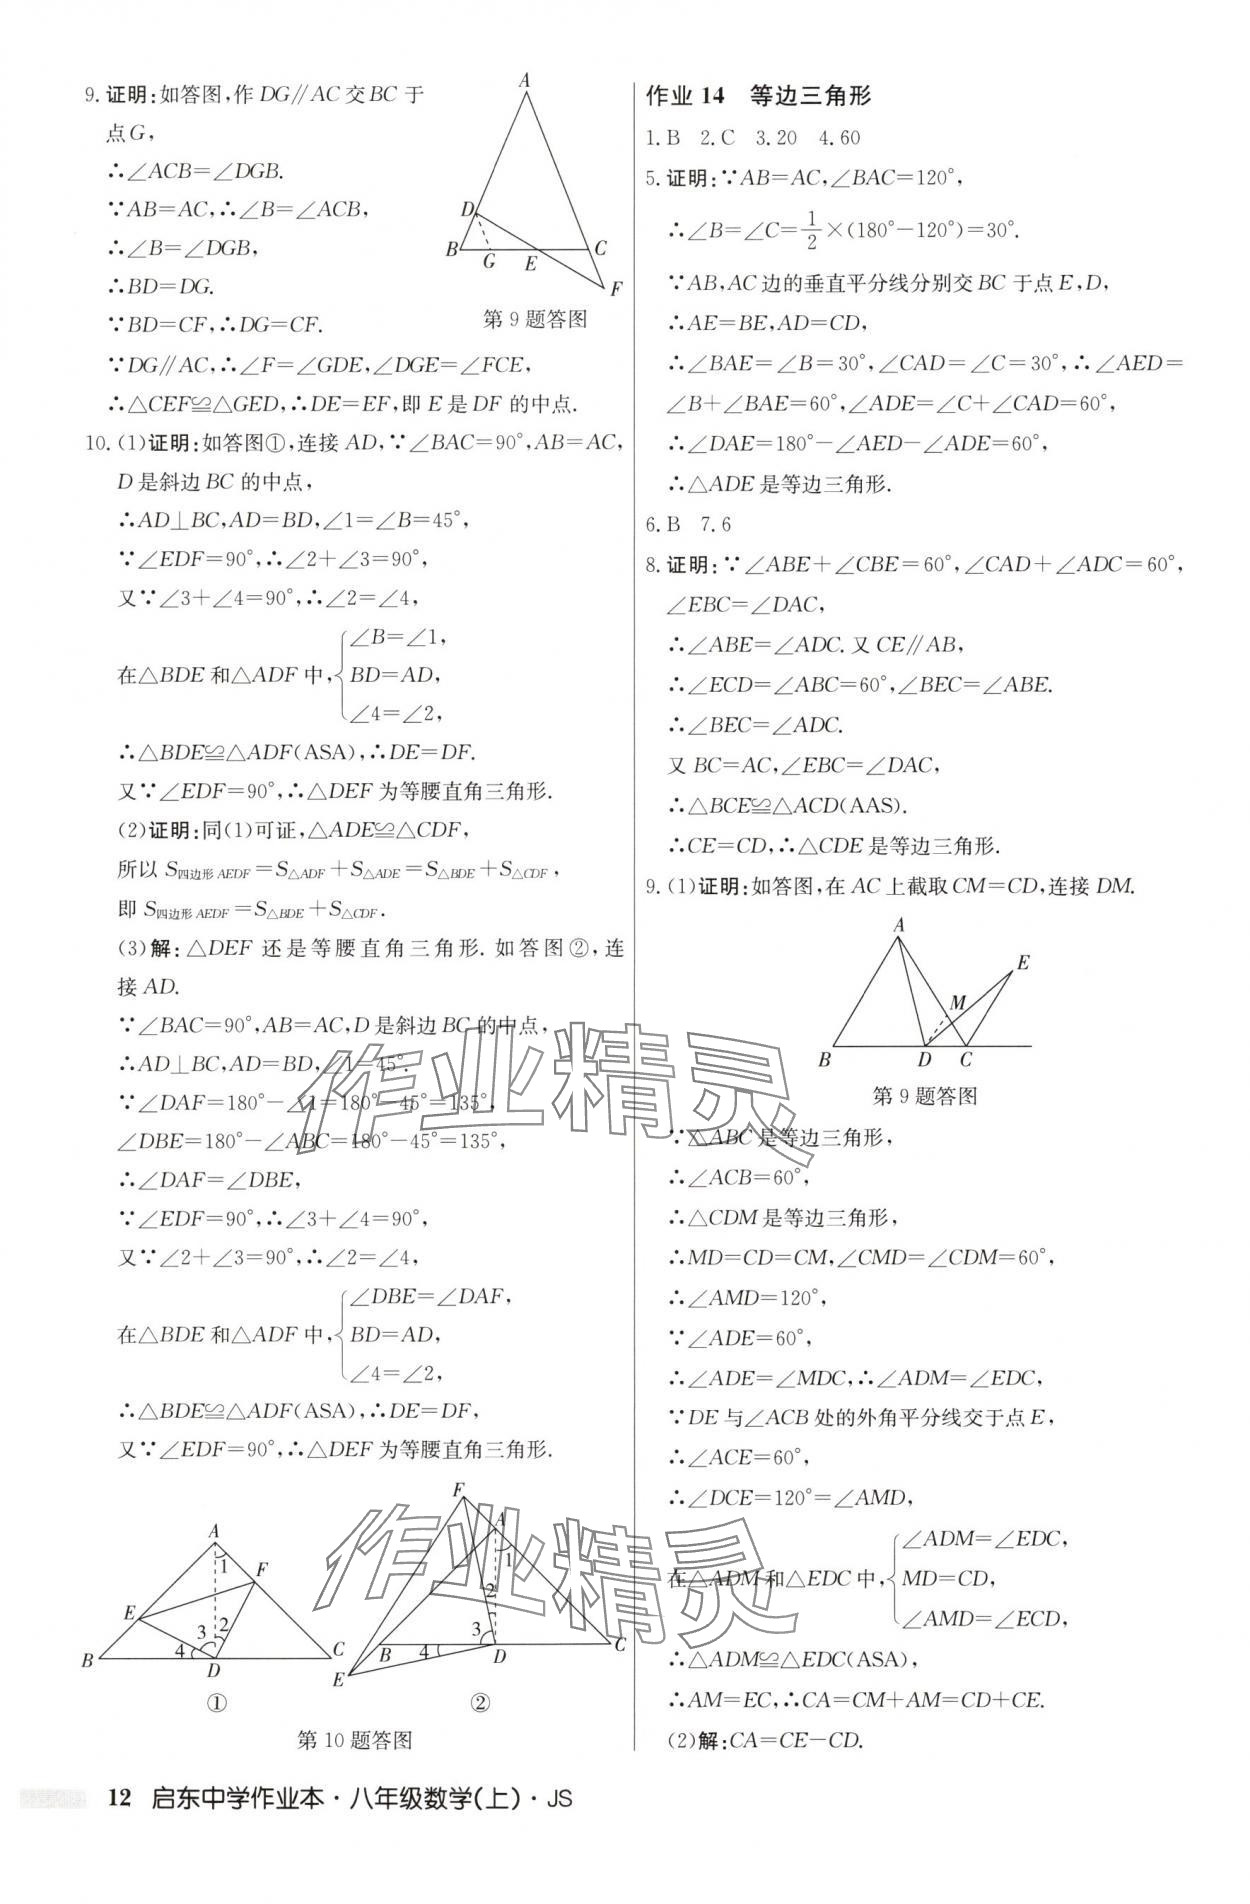 9.证明:如答图,作 DG∥AC 交 BC 于
点G,
∴∠ACB=∠DGB.
∵AB=AC,∴∠B=∠ACB,
∴∠B=∠DGB,
∴BD=DG.
∵BD=CF,∴DG=CF.
∵DG∥AC,∴∠F=∠GDE,∠DGE=∠FCE,
∴△CEF≌△GED,∴DE=EF,即 E 是 DF 的中点.
A
D
B
G
E
C
F
第 9 题答图
10.(1)证明:如答图①,连接 AD,∵∠BAC=90°,AB=AC,
D 是斜边 BC 的中点,
∴AD⊥BC,AD=BD,∠1=∠B=45°,
∵∠EDF=90°,∴∠2+∠3=90°,
又∵∠3+∠4=90°,∴∠2=∠4,
∠B=∠1,
在△BDE 和△ADF 中,{BD=AD,
∠4=∠2,
∴△BDE≌△ADF(ASA),∴DE=DF.
又∵∠EDF=90°,∴△DEF 为等腰直角三角形.
(2)证明:同(1)可证,△ADE≌△CDF,
所以 S四边形AEDF=S△ADF+S△ADE=S△BDE+S△CDF,
即 S四边形AEDF=S△BDE+S△CDF.
(3)解:△DEF 还是等腰直角三角形.如答图②,连
接 AD.
∵∠BAC=90°,AB=AC,D 是斜边 BC 的中点,
∴AD⊥BC,AD=BD,∠1=45°.
∵∠DAF=180°-∠1=180°-45°=135°,
∠DBE=180°-∠ABC=180°-45°=135°,
∴∠DAF=∠DBE,
∵∠EDF=90°,∴∠3+∠4=90°,
又∵∠2+∠3=90°,∴∠2=∠4,
∠DBE=∠DAF,
在△BDE 和△ADF 中,{BD=AD,
∠4=∠2,
∴△BDE≌△ADF(ASA),∴DE=DF,
又∵∠EDF=90°,∴△DEF 为等腰直角三角形.
A
1
F
E
3
2
4
B
D
C
①
F
A
1
2
3
4
B
D
C
E
②
第 10 题答图
作业 14 等边三角形
1.B 2.C 3.20 4.60
5.证明:∵AB=AC,∠BAC=120°,
∴∠B=∠C=1/2×(180°-120°)=30°.
∵AB,AC 边的垂直平分线分别交 BC 于点 E,D,
∴AE=BE,AD=CD,
∴∠BAE=∠B=30°,∠CAD=∠C=30°,∴∠AED=
∠B+∠BAE=60°,∠ADE=∠C+∠CAD=60°,
∴∠DAE=180°-∠AED-∠ADE=60°,
∴△ADE 是等边三角形.
6.B 7.6
8.证明:∵∠ABE+∠CBE=60°,∠CAD+∠ADC=60°,
∠EBC=∠DAC,
∴∠ABE=∠ADC.又 CE∥AB,
∴∠ECD=∠ABC=60°,∠BEC=∠ABE.
∴∠BEC=∠ADC.
又 BC=AC,∠EBC=∠DAC,
∴△BCE≌△ACD(AAS).
∴CE=CD,∴△CDE 是等边三角形.
9.(1)证明:如答图,在 AC 上截取 CM=CD,连接 DM.
A
E
M
B
D
C
第 9 题答图
∵△ABC 是等边三角形,
∴∠ACB=60°,
∴△CDM 是等边三角形,
∴MD=CD=CM,∠CMD=∠CDM=60°,
∴∠AMD=120°,
∵∠ADE=60°,
∴∠ADE=∠MDC,∴∠ADM=∠EDC,
∵DE 与∠ACB 处的外角平分线交于点 E,
∴∠ACE=60°,
∴∠DCE=120°=∠AMD,
∠ADM=∠EDC,
在△ADM 和△EDC 中,{MD=CD,
∠AMD=∠ECD,
∴△ADM≌△EDC(ASA),
∴AM=EC,∴CA=CM+AM=CD+CE.
(2)解:CA=CE-CD.
作业精灵
作业精灵
12 启东中学作业本·八年级数学(上)·JS